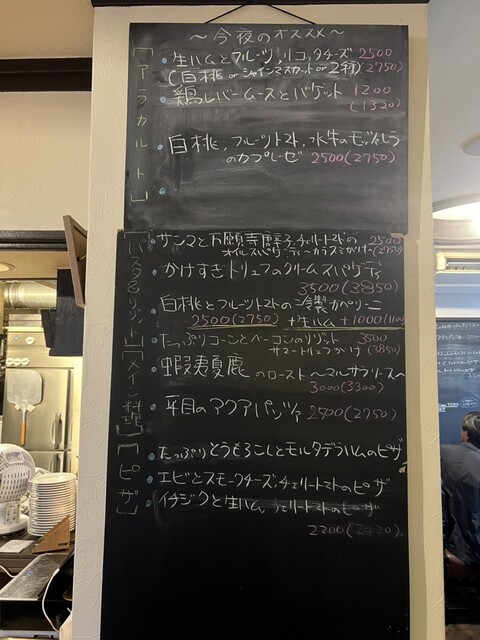 ～今夜のオススメ～
［アラカルト］
・生ハムとフルーツ、リコッタチーズ 2500
(白桃 or シャインマスカット or 2種) (2750)
・鶏レバームースとバゲット 1200
(1320)
・白桃、フルーツトマト、水牛のモッツァレラ
のカプレーゼ 2500(2750)
［パスタ&リゾット］
・サンマと万願寺唐辛子、チェリートマトの 2500
オイルスパゲッティ～カラスミがけ～(2750)
・かけすぎトリュフのクリームスパゲティ
3500(3850)
・白桃とフルーツトマトの冷製カペリーニ
2500(2750) +生ハム +1000(1100)
・たっぷりコーンとベーコンのリゾット 3500
サマートリュフがけ (3850)
［メイン料理］
・蝦夷夏鹿のロースト～マルサラソース～
3000(3300)
・平目のアクアパッツァ 2500(2750)
［ピザ］
・たっぷりとうもろこしとモルタデラハムのピザ
・エビとスモークチーズ、チェリートマトのピザ
・イチジクと生ハム、チェリートマトのピザ
2200(2420)